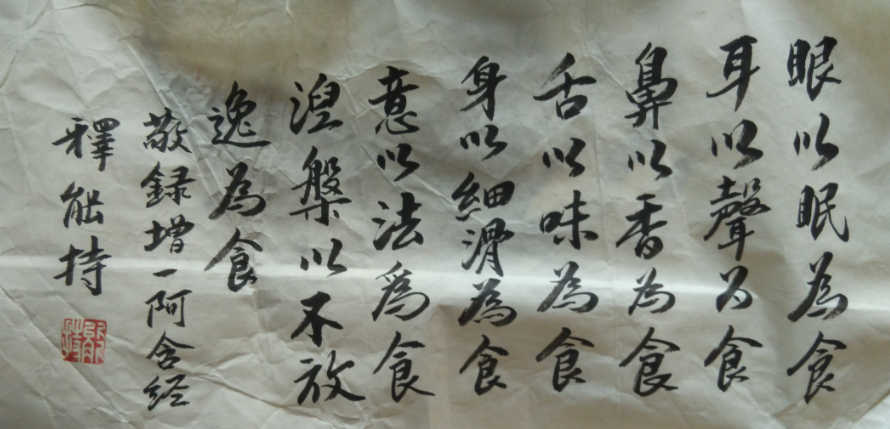 眼以眠為食
耳以聲為食
鼻以香為食
舌以味為食
身以細滑為食
意以法為食
涅槃以不放
逸為食
敬録增一阿含经
釋能持
能持